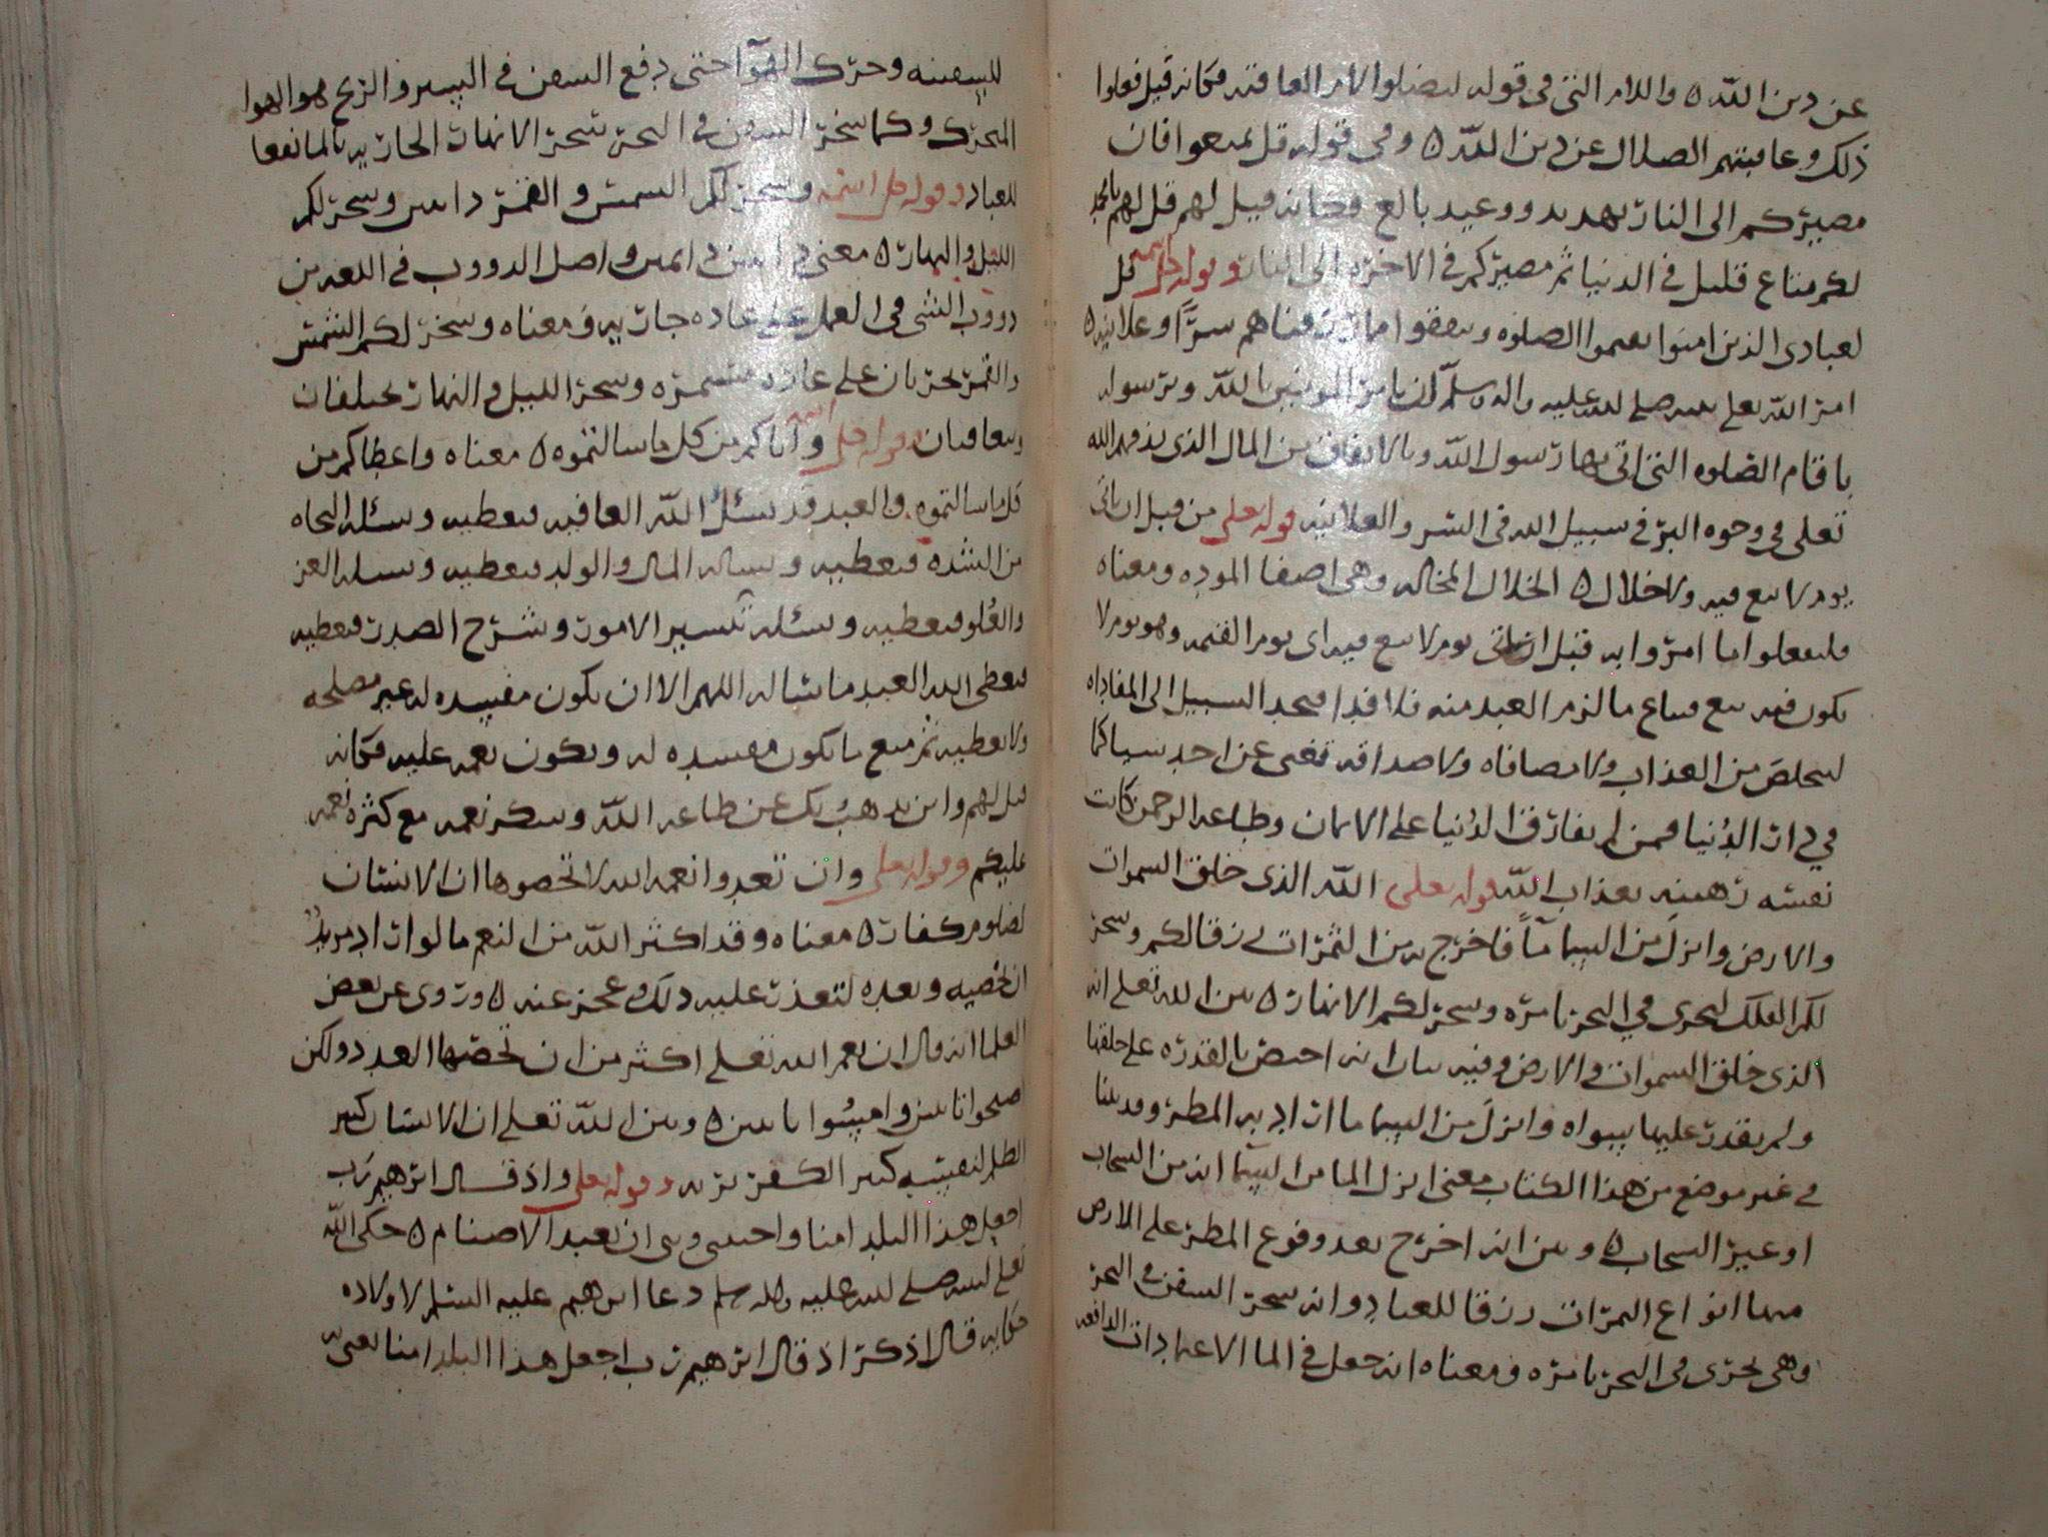 عن دين الله ه واللام التي في قوله ليضلوا لام العاقبه فكانه قيل فعلوا
ذلك وعاقبتهم الضلال عن دين الله ه وفي قوله قل تمتعوا فان
مصيركم الى النار تهديد ووعيد بالغ فكانه قيل لهم قل لهم
لكم متاع قليل في الدنيا ثم مصيركم في الاخرة الى النار وقوله قل
لعبادي الذين امنوا يقيموا الصلوه وينفقوا مما رزقناهم سرًّا وعلانيه ه
امر الله تعلى نبيه صلى الله عليه واله وسلم ان يامر المومنين بالله وبرسوله
باقام الصلوه التي اتى بها رسول الله وبالانفاق من المال الذي رزقهم الله
تعلى في وجوه البر في سبيل الله في السر والعلانيه قوله تعلى من قبل ان ياتي
يوم لا بيع فيه ولا خلال ه الخلال المخاله وهي اصفا الموده ومعناه
فليفعلوا ما امروا به قبل ان ياتي يوم لا بيع فيه اي يوم القيمه وهو يوم لا
يكون فيه بيع فيباع ما لزم العبد منه فلا فدا فيجد السبيل الى المفاداه
ليخلص من العذاب ولا مصافاه ولا صداقه تغني عن احد شيا كما
في دار الدنيا فمن لم يفارق الدنيا على الايمان وطاعه الرحمن كانت
نفسه رهينه بعذاب الله قوله تعلى الله الذي خلق السموات
والارض وانزل من السما مآً فاخرج به من الثمرات رزقا لكم وسخر
لكم الفلك لتجري في البحر بامره وسخر لكم الانهار ه بين الله تعلى انه
الذي خلق السموات والارض وفيه بيان انه اختص بالقدره على خلقها
ولم يقدر عليها سواه وانزل من السما ما اراد به المطر وقد بينا
في غير موضع من هذا الكتاب معنى انزل الما من السما انه من السحاب
او غير السحاب ه وبين انه اخرج بعد وقوع المطر على الارض
منها انواع الثمرات رزقا للعباد وانه سخر السفن في البحر
وهي تجري في البحر بامره ومعناه انه جعل في الما الاعتمادات الدافعه
للسفينه وحرك الهوآ حتى دفع السفن في السير والريح هو الهوا
المتحرك وكما سخر السفن في البحر سخر الانهار الجاريه بالما نفعا
للعباد وقوله جل اسمه وسخر لكم الشمس والقمر دايبين وسخر لكم
الليل والنهار ه معنى دايبين دايمين واصل الدووب في اللغه من
دووب الشي في العمل على عاده جاريه فمعناه وسخر لكم الشمس
والقمر يجريان على عاده مستمره وسخر الليل والنهار يختلفان
ويتعاقبان وقوله جل اسمه واتاكم من كل ما سالتموه ه معناه واعطاكم من
كل ما سالتموه والعبد قد يسئل الله العافيه فيعطيه ويسئله النجاه
من الشده فيعطيه ويساله المال والولد فيعطيه ويسله العز
والعُلو فيعطيه ويسئله تيسير الامور وشرح الصدر فيعطيه
فيعطي الله العبد ما يشا له اللهم الا ان يكون مفسده له غير مصلحه
ولا يعطيه ثم منع ما يكون مفسده له ويكون نعمه عليه فكانه
قيل لهم واين يذهب بكم عن طاعه الله وشكر نعمه مع كثره نعمه
عليكم وقوله تعلى وان تعدوا نعمه الله لا تحصوها ان الانسان
لظلوم كفار ه معناه وقد اكثر الله من النعم ما لو اراد مريدٌ
ان يحصيه ويعده لتعذر عليه ذلك وعجز عنه ه وروى عن بعض
العلما انه قال ان نعم الله تعلى اكثر من ان تحصها العد ولكن
اصبحوا تايبين وامسُوا تايبين ه وبين الله تعلى ان الانسان كثير
الظلم لنفسه كثير الكفر بربه وقوله تعلى واذ قال ابرهيم رب
اجعل هذا البلد امنا واجنبني وبني ان نعبد الاصنام ه حكى الله
تعلى لنبيه صلى الله عليه واله وسلم دعا ابرهيم عليه السلم لاولاده
فكانه قال اذكر اذ قال ابرهيم رب اجعل هذا البلد امنا يعني